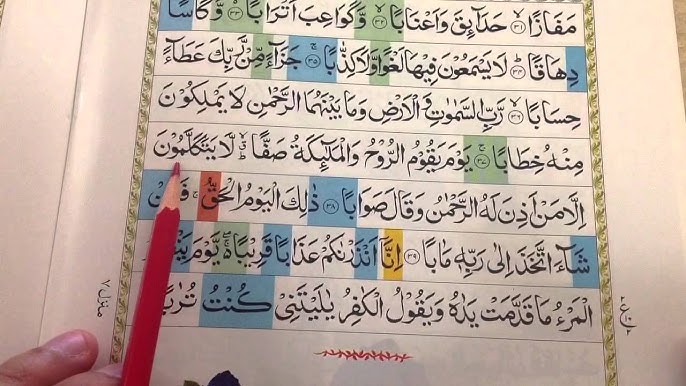 مَفَازًا ۙ﴿۳۱﴾ حَدَآئِقَ وَاَعْنَابًا ۙ﴿۳۲﴾ وَّكَوَاعِبَ اَتْرَابًا ۙ﴿۳۳﴾ وَّكَاْسًا
دِهَاقًا ؕ﴿۳۴﴾ لَا يَسْمَعُوْنَ فِيْهَا لَغْوًا وَّلَا كِذّٰبًا ۚ﴿۳۵﴾ جَزَآءً مِّنْ رَّبِّكَ عَطَآءً
حِسَابًا ۙ﴿۳۶﴾ رَّبِّ السَّمٰوٰتِ وَالْاَرْضِ وَمَا بَيْنَهُمَا الرَّحْمٰنِ لَا يَمْلِكُوْنَ
مِنْهُ خِطَابًا ۚ﴿۳۷﴾ يَوْمَ يَقُوْمُ الرُّوْحُ وَالْمَلٰٓئِكَةُ صَفًّا ؕۙ لَّا يَتَكَلَّمُوْنَ
اِلَّا مَنْ اَذِنَ لَهُ الرَّحْمٰنُ وَقَالَ صَوَابًا ﴿۳۸﴾ ذٰلِكَ الْيَوْمُ الْحَقُّ ۚ فَمَنْ
شَآءَ اتَّخَذَ اِلٰى رَبِّهٖ مَاٰبًا ﴿۳۹﴾ اِنَّاۤ اَنْذَرْنٰكُمْ عَذَابًا قَرِيْبًا ۖۚ يَّوْمَ يَنْظُرُ
الْمَرْءُ مَا قَدَّمَتْ يَدٰهُ وَيَقُوْلُ الْكٰفِرُ يٰلَيْتَنِىْ كُنْتُ تُرٰبًا